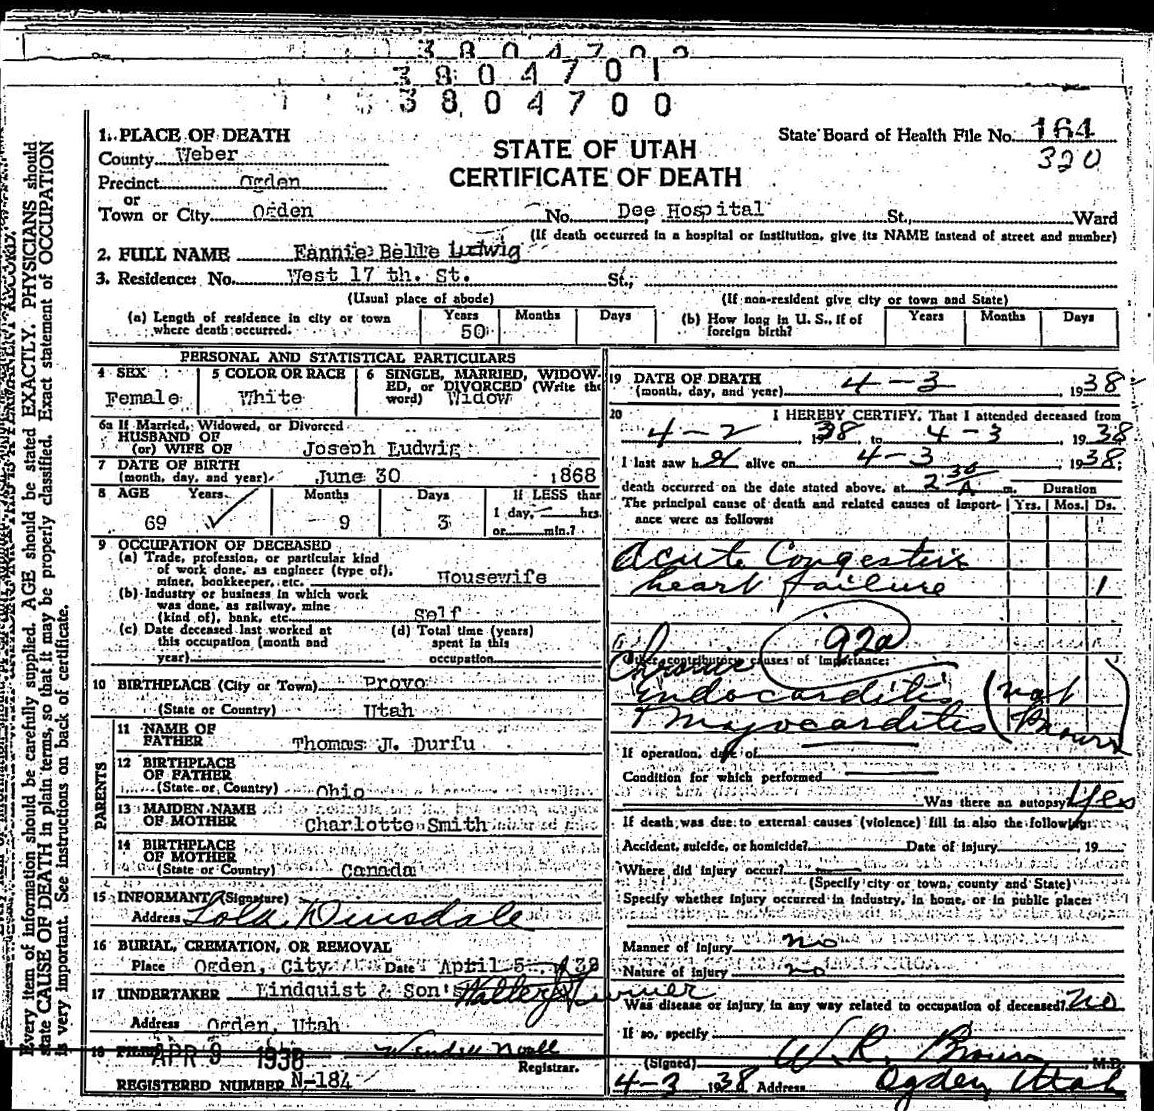 3804702
3804701
3804700
1. PLACE OF DEATH
County Weber
Precinct Ogden
or
Town or City Ogden No. Dee Hospital St., Ward
STATE OF UTAH
CERTIFICATE OF DEATH
State Board of Health File No. 164
320
(If death occurred in a hospital or institution, give its NAME instead of street and number)
2. FULL NAME Fannie Belle Ludwig
3. Residence: No. West 17 th. St. St.,
(Usual place of abode) (If non-resident give city or town and State)
(a) Length of residence in city or town where death occurred. Years 50 Months Days
(b) How long in U. S., if of foreign birth? Years Months Days
PERSONAL AND STATISTICAL PARTICULARS
4 SEX Female
5 COLOR OR RACE White
6 SINGLE, MARRIED, WIDOWED, or DIVORCED (Write the word) Widow
6a If Married, Widowed, or Divorced
HUSBAND OF
(or) WIFE OF Joseph Ludwig
7 DATE OF BIRTH
(month, day, and year) June 30 1868
8 AGE Years 69 Months 9 Days 3
If LESS than
1 day, hrs.
or min.?
9 OCCUPATION OF DECEASED
(a) Trade, profession, or particular kind
of work done, as engineer (type of),
miner, bookkeeper, etc. Housewife
(b) Industry or business in which work
was done, as railway, mine
(kind of), bank, etc. Self
(c) Date deceased last worked at
this occupation (month and
year)
(d) Total time (years)
spent in this
occupation
10 BIRTHPLACE (City or Town) Provo
(State or Country) Utah
PARENTS
11 NAME OF
FATHER Thomas J. Durfu
12 BIRTHPLACE
OF FATHER
(State or Country) Ohio
13 MAIDEN NAME
OF MOTHER Charlotte Smith
14 BIRTHPLACE
OF MOTHER
(State or Country) Canada
15 INFORMANT (Signature)
Address Lola Dinsdale
16 BURIAL, CREMATION, OR REMOVAL
Place Ogden, City Date April 5 38
17 UNDERTAKER Lindquist & Son's
Address Ogden, Utah
18 FILED APR 9 1938
Registrar.
REGISTERED NUMBER N-184
19 DATE OF DEATH
(month, day, and year) 4-3 1938
20 I HEREBY CERTIFY, That I attended deceased from
4-2 1938, to 4-3 1938
I last saw her alive on 4-3 1938;
death occurred on the date stated above, at 2 30 A m. Duration
The principal cause of death and related causes of importance were as follows: Yrs. Mos. Ds.
Acute Congestive
heart failure 1
92a
Other contributory causes of importance:
Chronic
endocarditis (not
+ myocarditis known)
If operation, date of
Condition for which performed
Was there an autopsy Yes
If death was due to external causes (violence) fill in also the following:
Accident, suicide, or homicide? Date of injury 19
Where did injury occur?
(Specify city or town, county and State)
Specify whether injury occurred in industry, in home, or in public place:
Manner of injury no
Nature of injury no
Was disease or injury in any way related to occupation of deceased? no
If so, specify
(Signed) W. R. Brown M.D.
4-3 1938 Address Ogden Utah
Every item of information should be carefully supplied. AGE should be stated EXACTLY. PHYSICIANS should
state CAUSE OF DEATH in plain terms, so that it may be properly classified. Exact statement of OCCUPATION
is very important. See instructions on back of certificate.